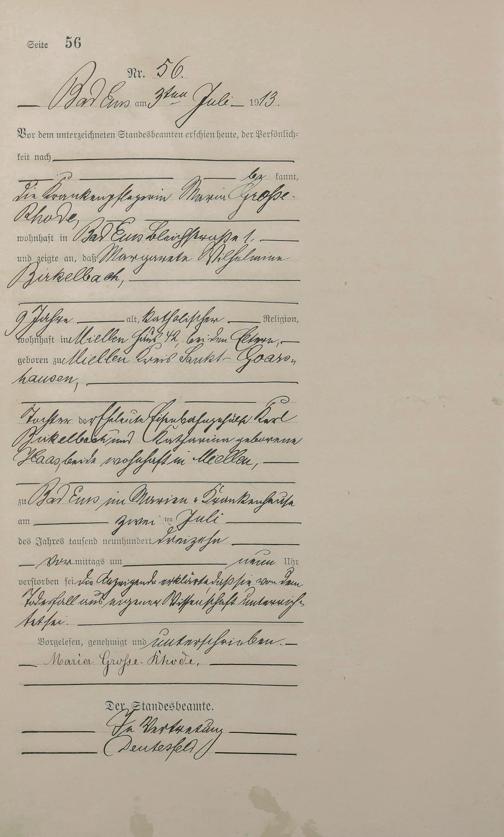 Seite 56
Nr. 56.
Bad Ems am 3ten Juli 1913.
Vor dem unterzeichneten Standesbeamten erschien heute, der Persönlich-
keit nach
be kannt,
die Krankenpflegerin Maria Große-
Rhode,
wohnhaft in Bad Ems Bleichstraße 1.
und zeigte an, daß Margarete Wilhelmine
Birkelbach,
9 Jahre alt, katholischer Religion,
wohnhaft in Miellen Haus 42, bei den Eltern,
geboren zu Miellen Kreis Sankt-Goars-
hausen,
Tochter der Eheleute Eisenbahngehülfe Karl
Birkelbach und Katharina geborene
Haas beide wohnhaft in Miellen,
zu Bad Ems, im Marien-Krankenhause
am zwei ten Juli
des Jahres tausend neunhundert dreizehn
Vor mittags um neun Uhr
verstorben sei. die Anzeigende erklärte daß sie von dem
Todesfall aus eigener Wissenschaft unterrich-
tet sei.
Vorgelesen, genehmigt und unterschrieben.
Maria Grosse-Rhode.
Der Standesbeamte.
In Vertretung